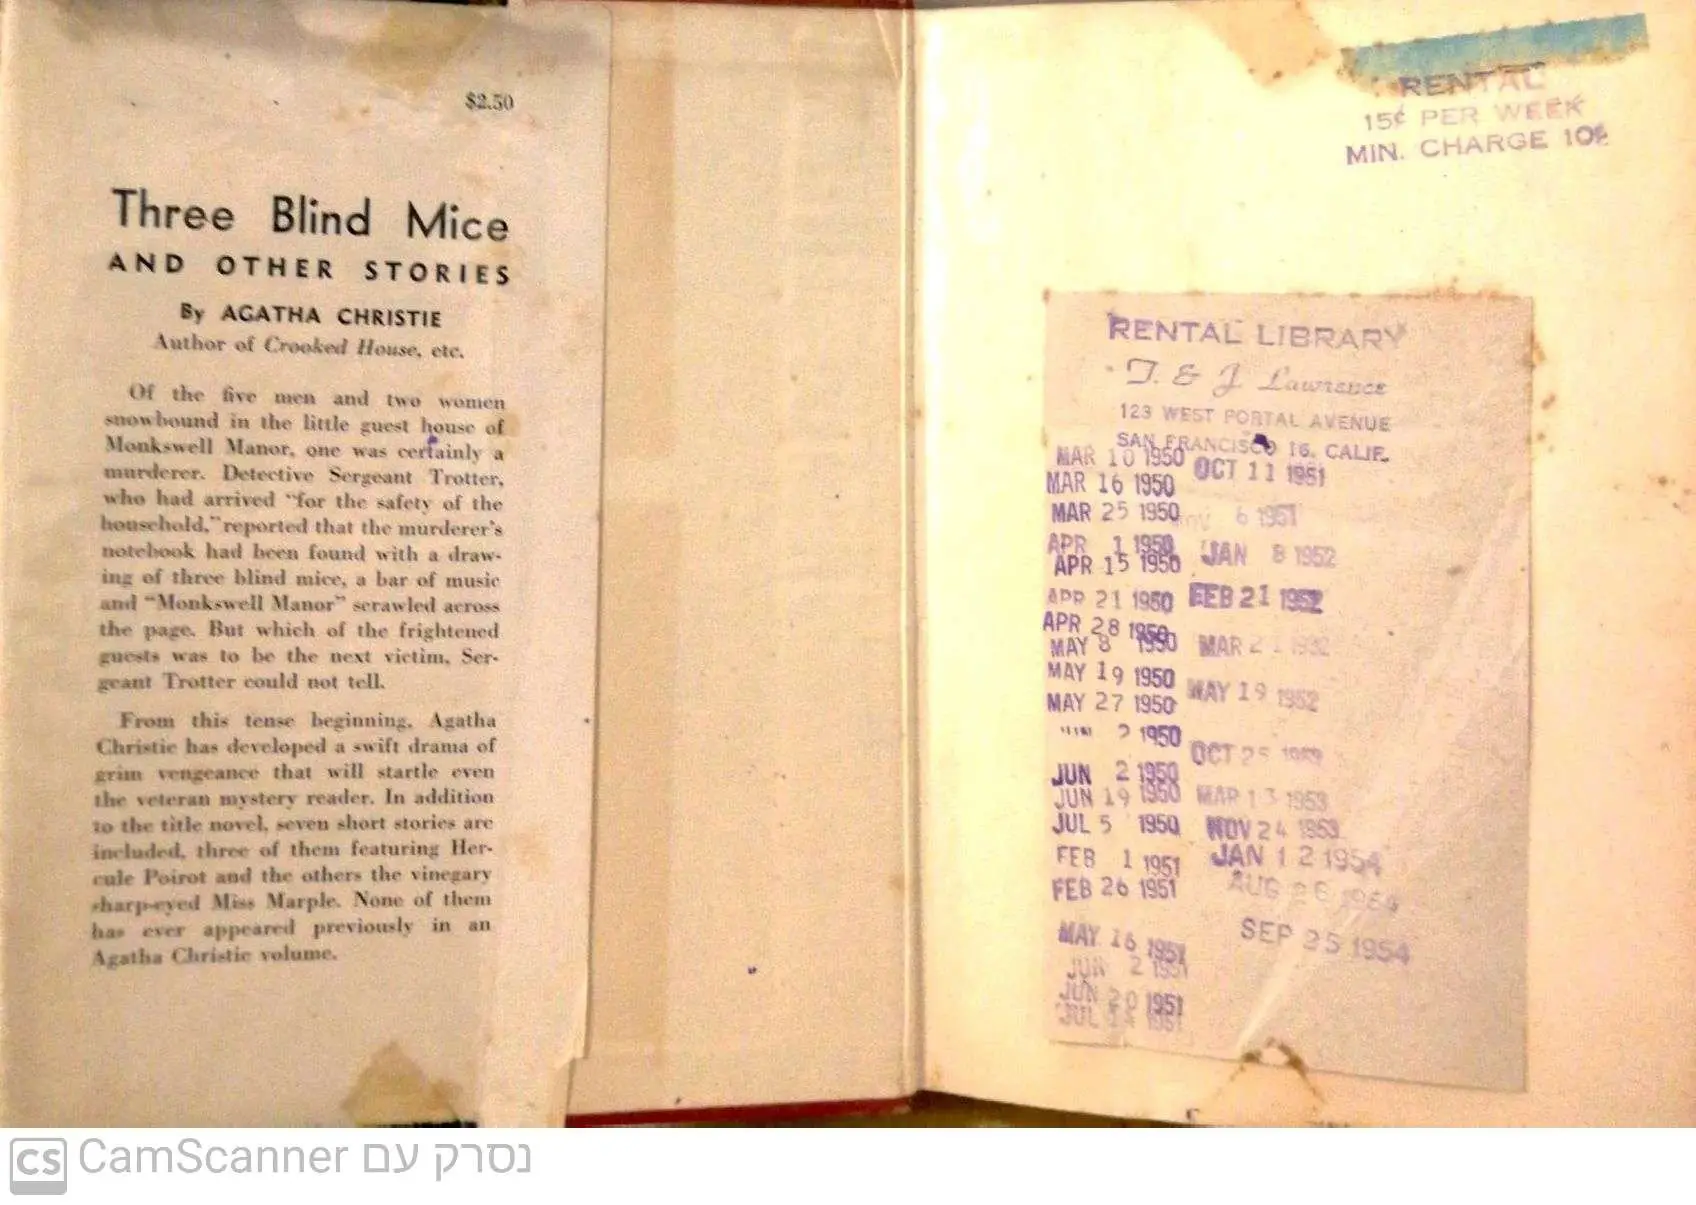 $2.50
Three Blind Mice
AND OTHER STORIES
By AGATHA CHRISTIE
Author of Crooked House, etc.
Of the five men and two women
snowbound in the little guest house of
Monkswell Manor, one was certainly a
murderer. Detective Sergeant Trotter,
who had arrived "for the safety of the
household," reported that the murderer's
notebook had been found with a draw-
ing of three blind mice, a bar of music
and "Monkswell Manor" scrawled across
the page. But which of the frightened
guests was to be the next victim, Ser-
geant Trotter could not tell.
From this tense beginning, Agatha
Christie has developed a swift drama of
grim vengeance that will startle even
the veteran mystery reader. In addition
to the title novel, seven short stories are
included, three of them featuring Her-
cule Poirot and the others the vinegary
sharp-eyed Miss Marple. None of them
has ever appeared previously in an
Agatha Christie volume.
RENTAL
15¢ PER WEEK
MIN. CHARGE 10¢
RENTAL LIBRARY
T. & J. Lawrence
123 WEST PORTAL AVENUE
SAN FRANCISCO 16, CALIF.
MAR 10 1950
MAR 16 1950
MAR 25 1950
APR 1 1950
APR 15 1950
APR 21 1950
APR 28 1950
MAY 8 1950
MAY 19 1950
MAY 27 1950
JUN 2 1950
JUN 2 1950
JUN 19 1950
JUL 5 1950
FEB 1 1951
FEB 26 1951
MAY 16 1951
JUN 2 1951
JUN 20 1951
JUL 1951
OCT 11 1951
NOV 6 1951
JAN 8 1952
FEB 21 1952
MAR 21 1952
MAY 19 1952
OCT 25
MAR 13 1953
NOV 24 1953
JAN 12 1954
AUG 26 1954
SEP 25 1954
CS CamScanner נסרק עם